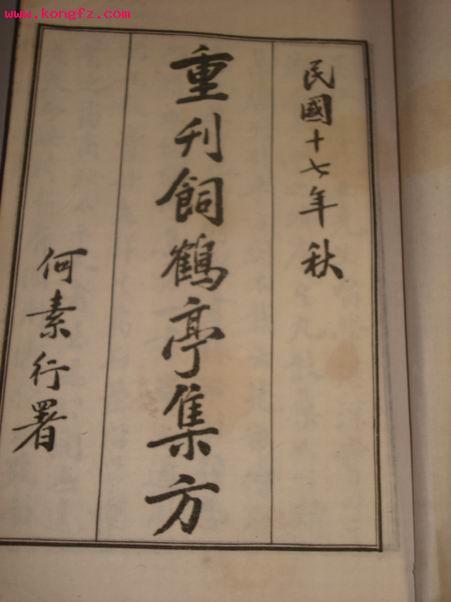 www.kongfz.com
民國十七年秋
重刋飼鶴亭集方
何素行署